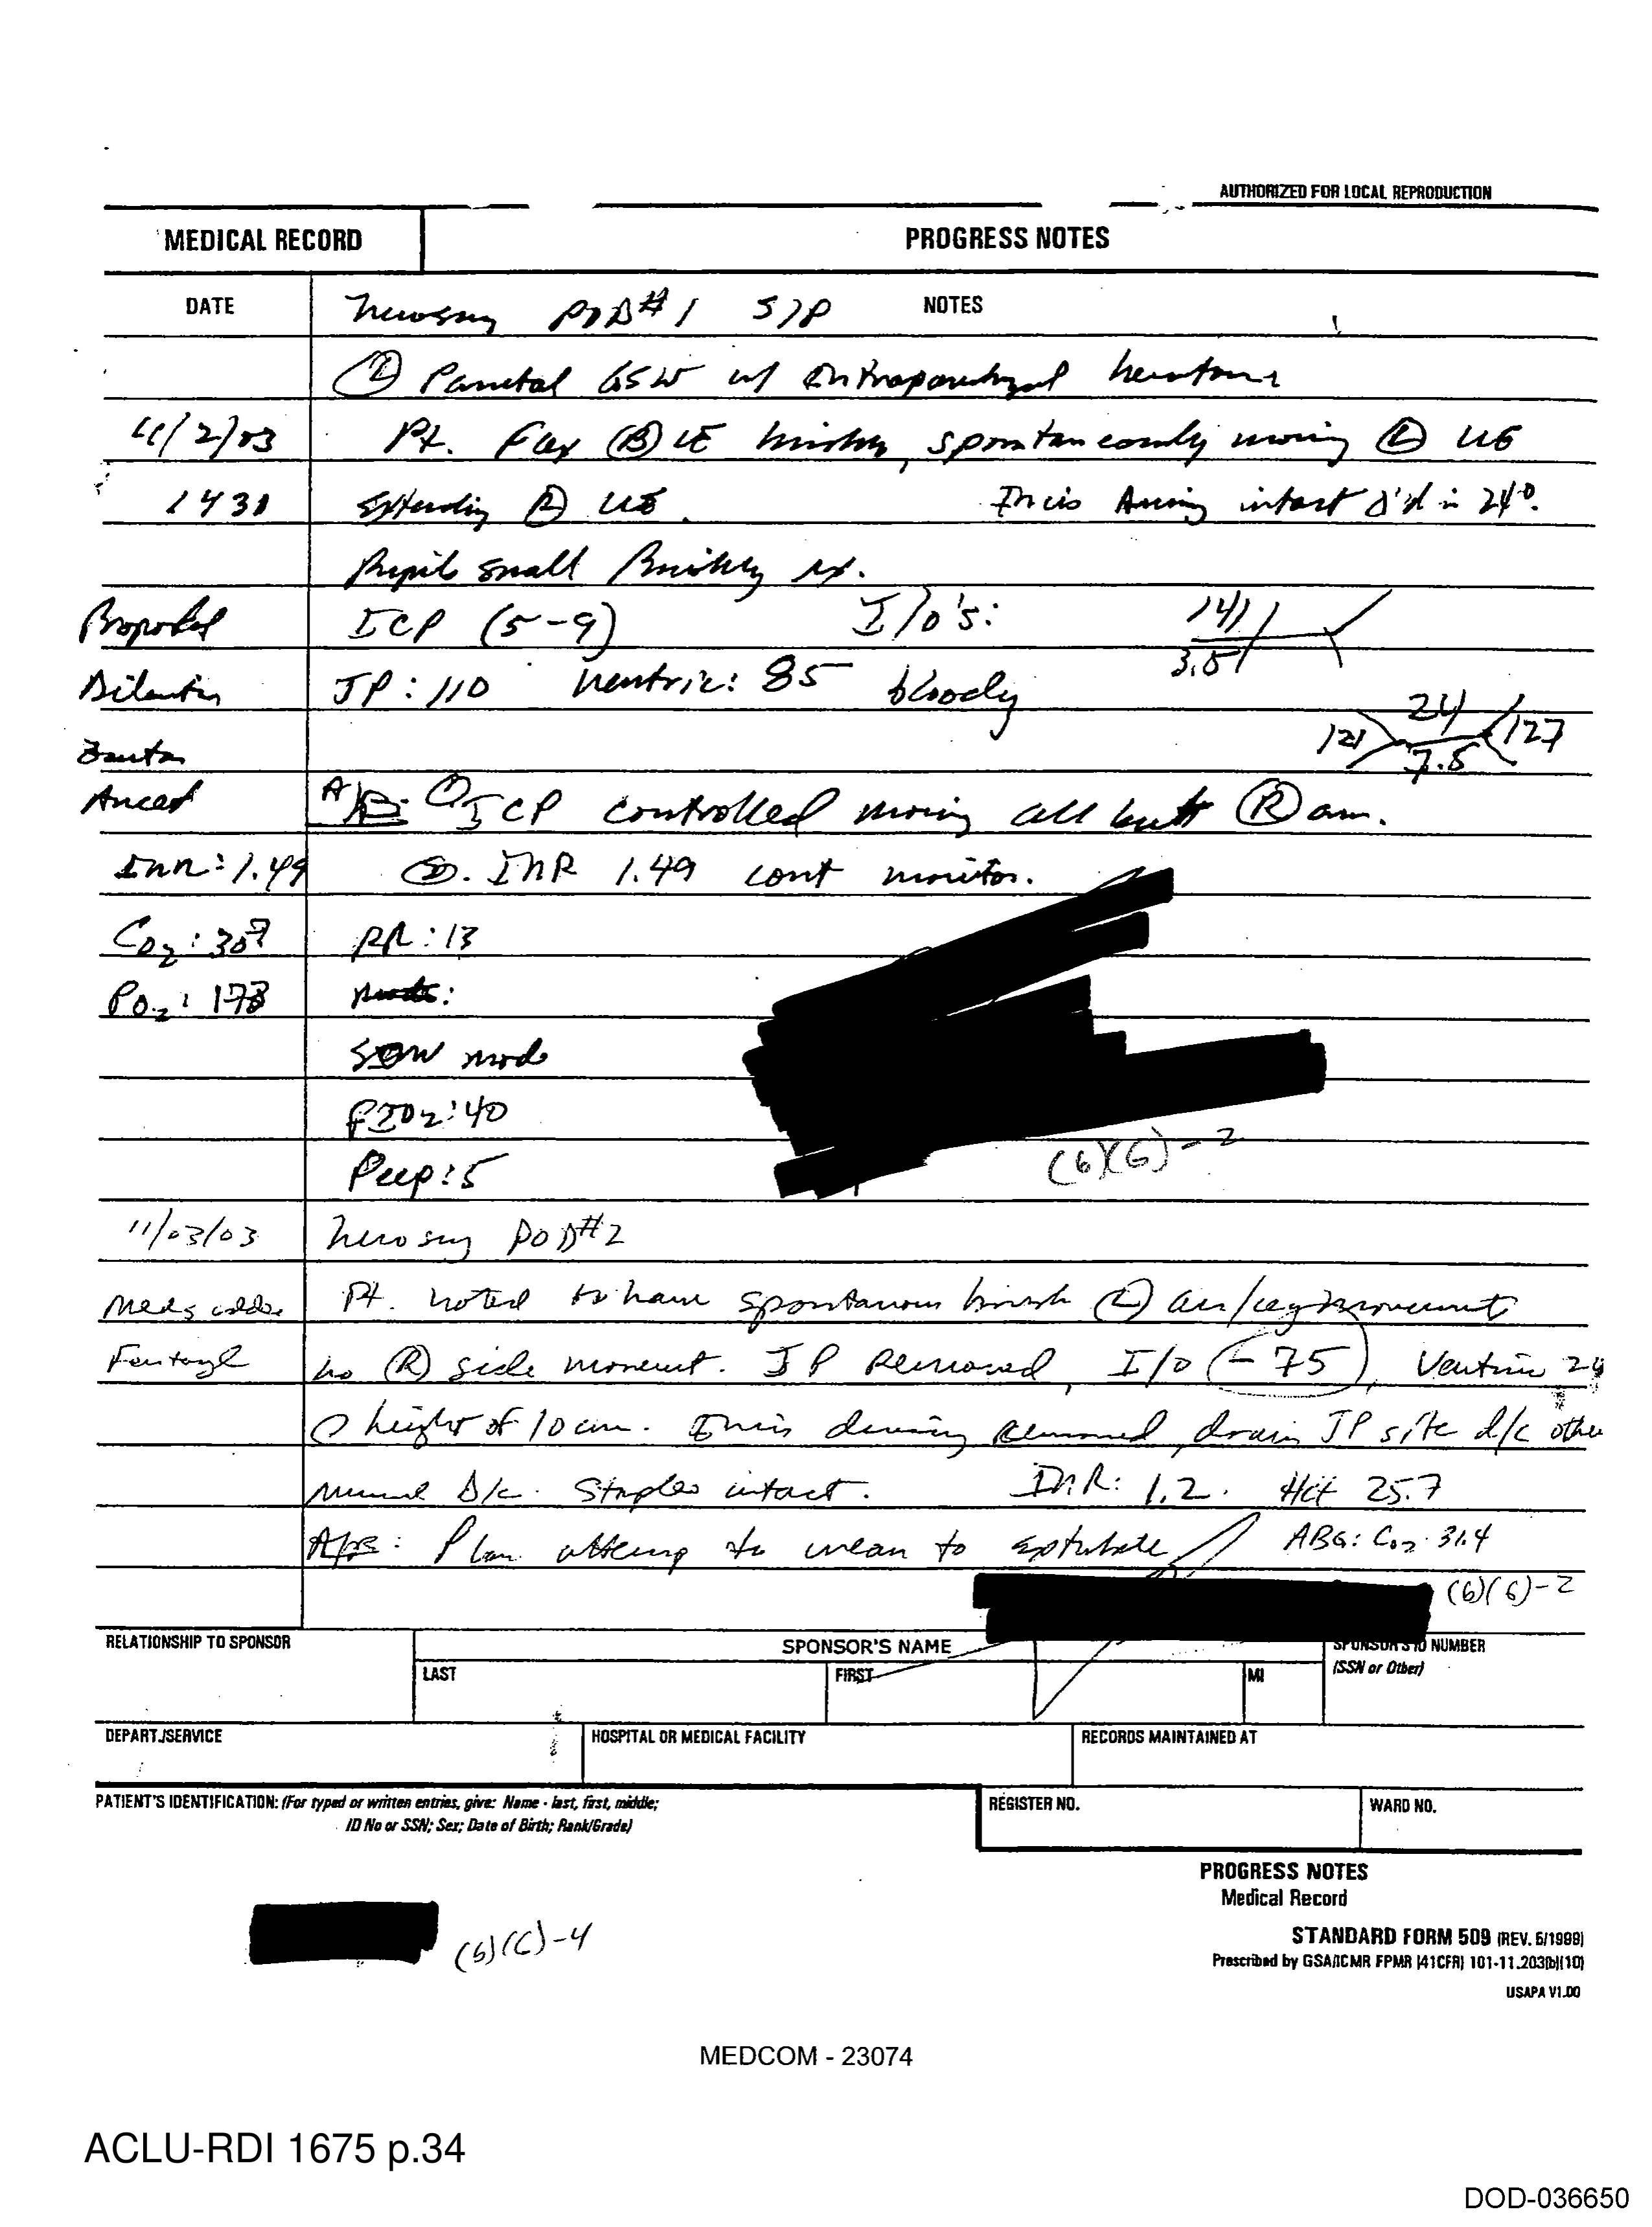 AUTHORIZED FOR LOCAL REPRODUCTION
MEDICAL RECORD
PROGRESS NOTES
DATE
NOTES
POD#1 S/P
(L) Parietal GSW w/
11/2/03 Pt. Flex (B) LE briskly, spontaneously moving (L) UE
1431 Extending (R) UE. intact in 24°.
Pupils small briskly rx.
Propofol ICP (5-9) I/O's: 141
3.5
Dilantin JP: 110 Ventric: 85 bloody
121 24 127
7.8
Zantac
Ancef A/P: ① ICP controlled moving all but (R) arm.
INR: 1.49 ②. INR 1.49 cont monitor.
CO2: 30 RR: 13
PO2: 178
mode
FIO2: 40
Peep: 5
(6)(6)-2
11/03/03 POD#2
Meds Pt. noted to have spontaneous brisk (L) arm/leg movement
Fentanyl no (R) side movement. JP Removed, I/O (-75), Ventric 24
height of 10 cm. removed, drain JP site d/c other
D/C. Staples intact. INR: 1.2. Hct 25.7
A/P: Plan attempt to wean to extubate ABG: CO2 31.4
(6)(6)-2
RELATIONSHIP TO SPONSOR
SPONSOR'S NAME
SPONSOR'S ID NUMBER
(SSN or Other)
LAST
FIRST
MI
DEPART./SERVICE
HOSPITAL OR MEDICAL FACILITY
RECORDS MAINTAINED AT
PATIENT'S IDENTIFICATION: (For typed or written entries, give: Name - last, first, middle;
ID No or SSN; Sex; Date of Birth; Rank/Grade)
REGISTER NO.
WARD NO.
PROGRESS NOTES
Medical Record
STANDARD FORM 509 (REV. 5/1999)
Prescribed by GSA/ICMR FPMR (41CFR) 101-11.203(b)(10)
USAPA V1.00
(6)(6)-4
MEDCOM - 23074
ACLU-RDI 1675 p.34
DOD-036650